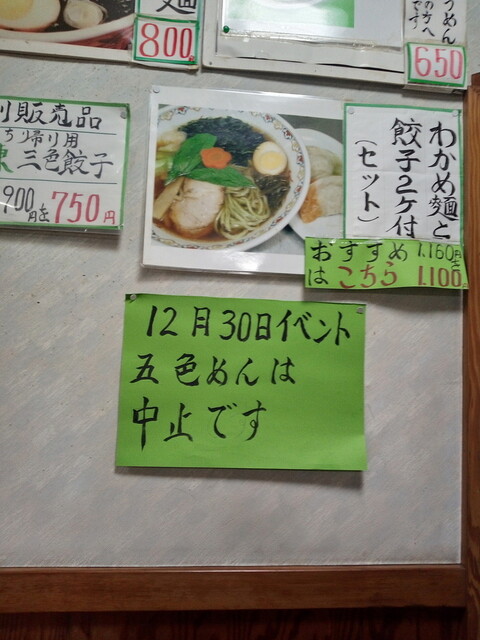 麺
800
650
わかめ麺と
餃子2ケ付
(セット)
おすすめ 1,160円を
は こちら 1,100
販売品
三色餃子
900円を750円
12月30日イベント
五色めんは
中止です